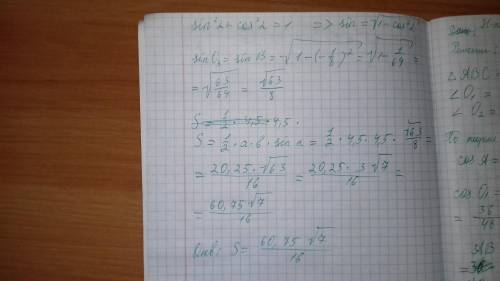 sin²α + cos²α = 1 => sin = √1 - cos²α
sin O₁ = sin B = √1 - (-1/8)² = √1 - 1/64 =
= √63/64 = √63/8
S = 1/2 · 4,5 · 4,5 ·
S = 1/2 · a · b · sin α = 1/2 · 4,5 · 4,5 · √63/8 =
= 20,25 · √63/16 = 20,25 · 3√7/16 =
= 60,75√7/16
S = 60,75 √7/16
Дано:
Решение
△ ABC
∠O₁ =
∠O₂ =
По
cos A =
cos O₁ =
= 38/48
AB